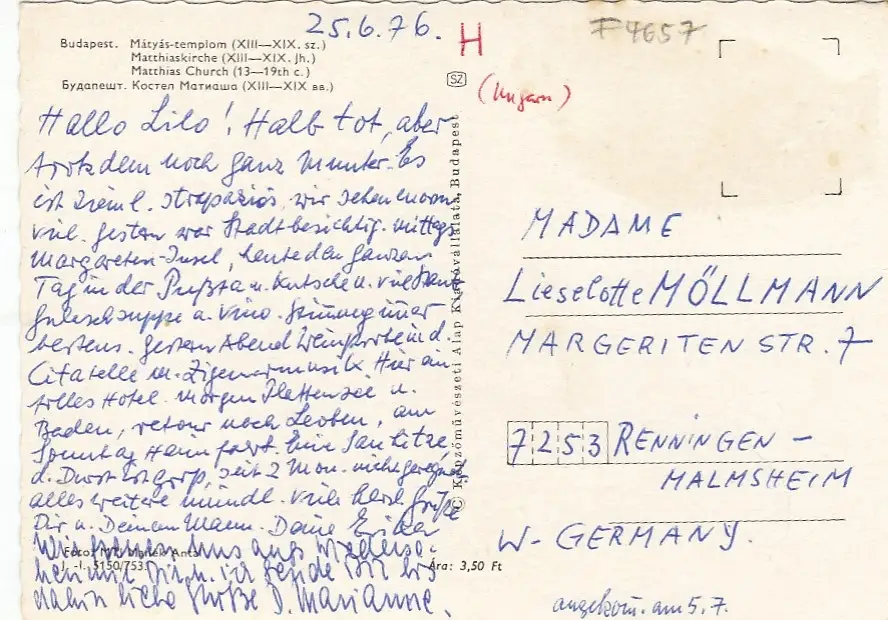 25.6.76.
H
(Ungarn)
F4657
Budapest. Mátyás-templom (XIII—XIX. sz.)
Matthiaskirche (XIII—XIX. Jh.)
Matthias Church (13—19th c.)
Будапешт. Костел Матиаша (XIII—XIX вв.)
SZ
Hallo Lilo! Halb tot, aber
trotzdem noch ganz munter. Es
ist zieml. strapaziös, wir sehen enorm
viel. Gestern war Stadtbesichtig. mittags
Margareten-Insel, heute den ganzen
Tag in der Pußta m. Kutsche u. viel
Gulaschsuppe u. Vino. Stimmung immer
bestens. Gestern Abend Weinprobe in d.
Citatelle m. Zigeunermusik. Hier ein
tolles Hotel. Morgen Plattensee u.
Baden, retour nach Leoben, am
Sonntag Heimfahrt. Eine Sauhitze,
d. Durst ist groß, seit 2 Mon. nicht geregnet
alles weitere mündl. Viele herzl. Grüße
Dir u. Deinem Mann. Deine Erika
Wir freuen uns aufs Wiederse-
hen mit Dir u. ich sende Dir bis
dahin liebe Grüße D. Marianne.
Foto: MTI,
J. -I. 5150/753.
Ára: 3,50 Ft
© Képzőművészeti Alap Kiadóvállalata, Budapest
MADAME
Lieselotte MÖLLMANN
MARGERITEN STR. 7
7253 RENNINGEN –
MALMSHEIM
W- GERMANY.
angekom. am 5.7.